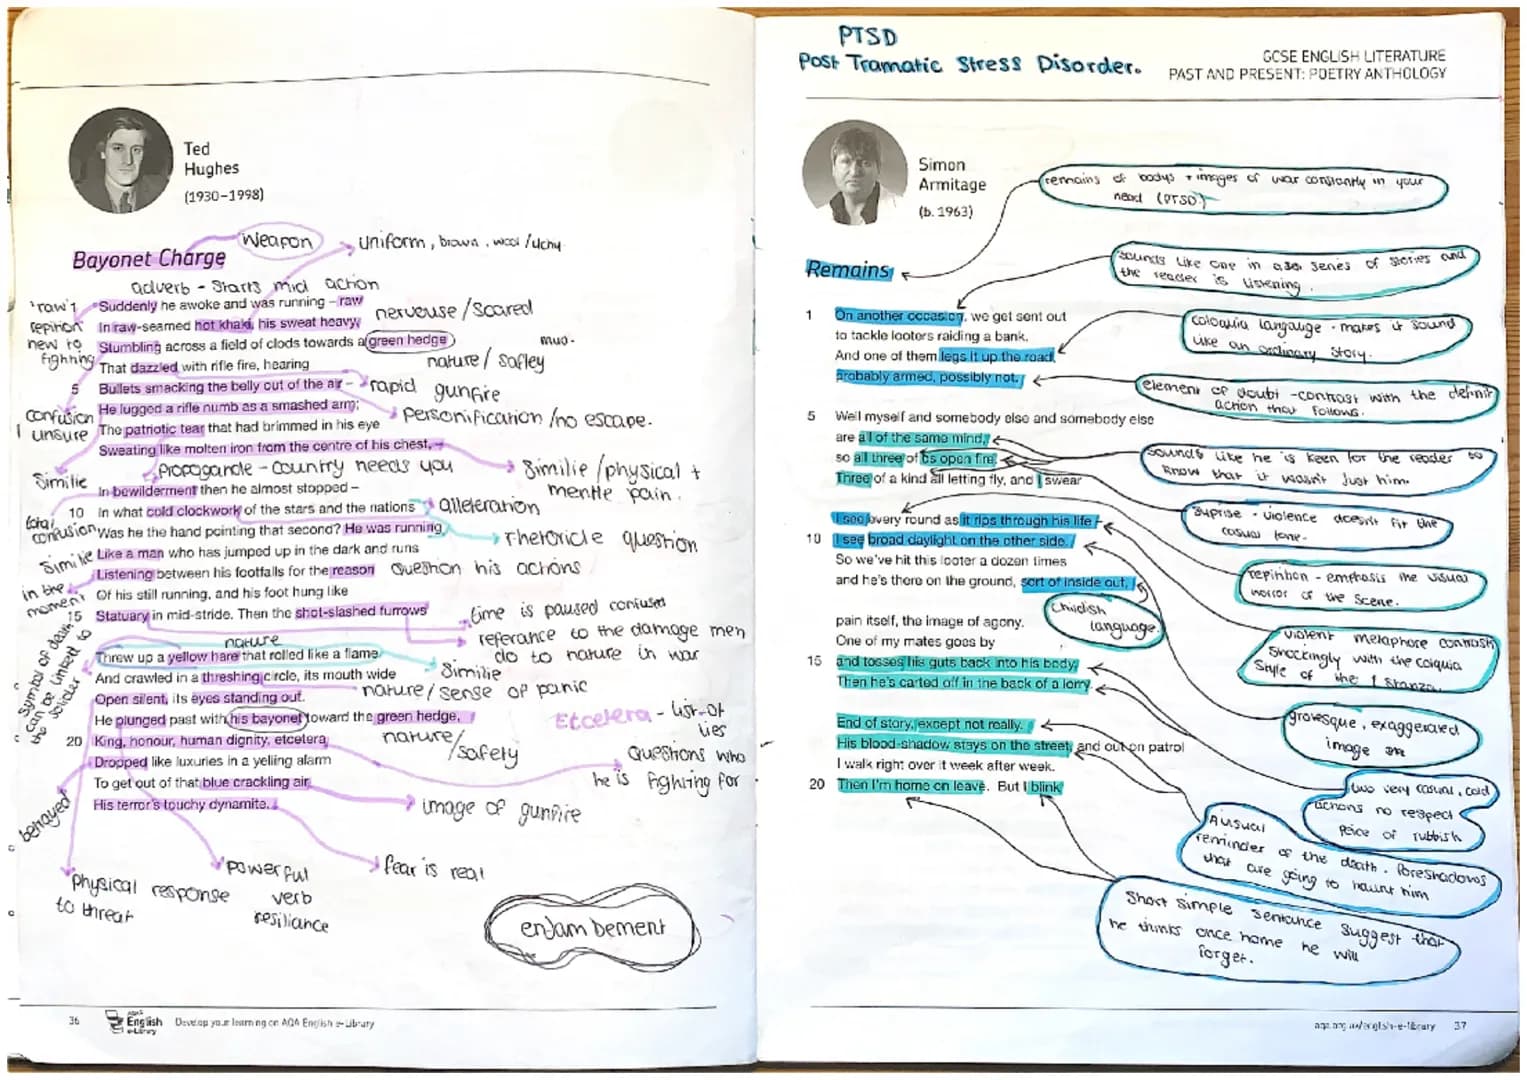 PTSD
Post Tramatic Stress Disorder.
GCSE ENGLISH LITERATURE
PAST AND PRESENT: POETRY ANTHOLOGY
Ted
Hughes
(1930–1998)
Weapon
uniform, brown, wool / itchy
Bayonet Charge
adverb - starts mid action
'raw'1
repition
new to
fighting
Suddenly he awoke and was running – raw
In raw-seamed hot khaki, his sweat heavy,
nervouse / scared
Stumbling across a field of clods towards a green hedge
mud.
That dazzled with rifle fire, hearing
nature / safley
5 Bullets smacking the belly out of the air –
rapid gunfire
He lugged a rifle numb as a smashed arm;
Personification / no escape.
confusion
unsure
The patriotic tear that had brimmed in his eye
Sweating like molten iron from the centre of his chest, –
Similie
Propogande - country needs you
Similie / physical +
mentle pain.
In bewilderment then he almost stopped –
10 In what cold clockwork of the stars and the nations
alleteration
total
confusion
Was he the hand pointing that second? He was running
rhetoricle question
Similie
Like a man who has jumped up in the dark and runs
Listening between his footfalls for the reason
Question his actions
in the
moment
Of his still running, and his foot hung like
15 Statuary in mid-stride. Then the shot-slashed furrows
time is paused confused
referance to the damage men
do to nature in war
nature
Threw up a yellow hare that rolled like a flame
Similie
And crawled in a threshing circle, its mouth wide
symbol of death
can be linked to
the solider
Open silent, its eyes standing out.
nature / sense of panic
He plunged past with his bayonet toward the green hedge,
nature
/safety
Etcetera - list of
lies
20 King, honour, human dignity, etcetera
Questions who
he is fighting for
Dropped like luxuries in a yelling alarm
To get out of that blue crackling air
His terror's touchy dynamite.
image of gunfire
betrayed
Physical response
to threat
Powerful
verb
resiliance
fear is real
enjambement
36
AQA
English
e-Library
Develop your learning on AQA English e-Library
Simon
Armitage
(b. 1963)
remains of bodys + images of war constantly in your
head (PTSD)
Remains
sounds like one in a series of stories and
the reader is listening.
1 On another occasion, we get sent out
to tackle looters raiding a bank.
And one of them legs it up the road,
probably armed, possibly not.
coloquia langauge - makes it sound
like an ordinary story.
element of doubt - contrast with the definit
action that follows.
5 Well myself and somebody else and somebody else
are all of the same mind,
so all three of us open fire.
Three of a kind all letting fly, and I swear
sounds like he is keen for the reader to
know that it wasnt just him.
Suprise - violence doesnt fit the
casual tone.
I see every round as it rips through his life –
10 I see broad daylight on the other side.
So we've hit this looter a dozen times
and he's there on the ground, sort of inside out,
repinion - emphasis the visual
horror of the scene.
Childish
language.
pain itself, the image of agony.
One of my mates goes by
15 and tosses his guts back into his body.
Then he's carted off in the back of a lorry.
violent metaphore contrash
shockingly with the colquia
style of the 1 stanza.
grotesque, exaggerated
image
End of story, except not really.
His blood-shadow stays on the street, and out on patrol
I walk right over it week after week.
20 Then I'm home on leave. But I blink
two very casual, cold
actions no respect
peice of rubbish
A usual
reminder of the death. foreshadows
that are going to haunt him
Short simple sentance suggest that
he thinks once home he will
forget.
aqa.org.uk/english-e-library 37